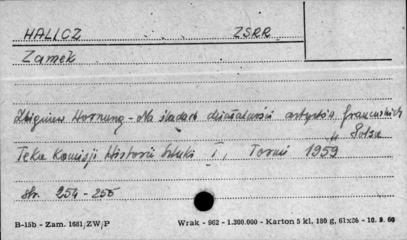 HALICZ ZSRR
Zamek
Zbigniew Hornung - Na śladach działalności artystów francuskich
w Polsce
Teka Komisji Historii Sztuki I, Toruń 1959
str. 254 - 255
B-15b - Zam. 1681/ZW/P Wrak - 962 - 1.300.000 - Karton 5 kl, 180 g, 61x86 - 10. 9. 60